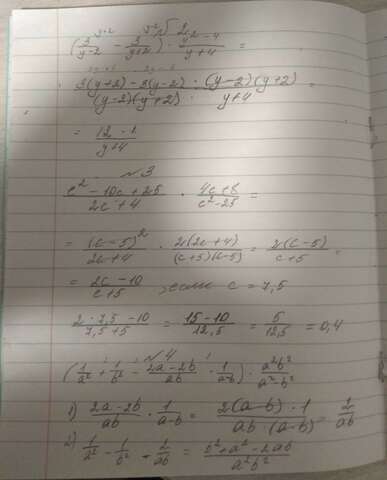 у+2 у-2 №2
(3/у-2 - 3/у+2) · у²-4/у+4 =
3(у+2)-3(у-2)/(у-2)(у+2) · (у-2)(у+2)/у+4 =
= 12/у+4
№3
c²-10c+25/2c+4 · 4c+8/c²-25 =
= (c-5)²/2c+4 · 2(2c+4)/(c+5)(c-5) = 2(c-5)/c+5 =
= 2c-10/c+5 , если c = 7,5
2·7,5-10/7,5+5 = 15-10/12,5 = 5/12,5 = 0,4
№4
(1/a² + 1/b² - 2a-2b/ab · 1/a-b) · a²b²/a²-b²
1) 2a-2b/ab · 1/a-b = 2(a-b)·1/ab(a-b) = 2/ab
2) 1/a² - 1/b² + 2/ab = b²+a²-2ab/a²b²